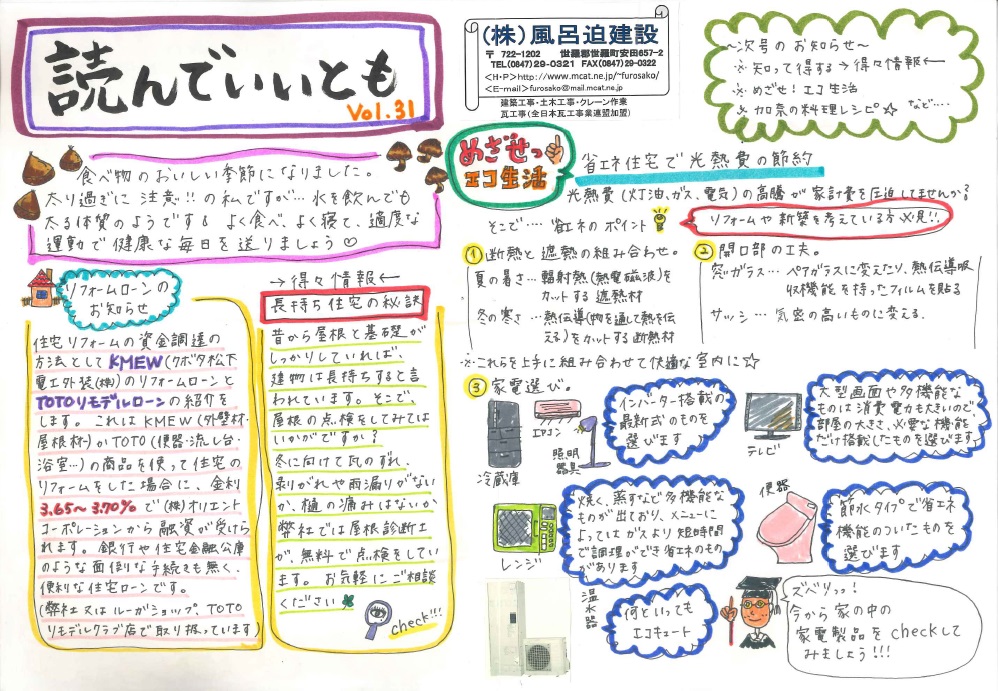 読んでいいとも
Vol.31
(株)風呂迫建設
〒 722-1202 世羅郡世羅町安田657-2
TEL(0847)29-0321 FAX(0847)29-0322
<H・P>http://www.mcat.ne.jp/~furosako/
<E-mail>furosako@mail.mcat.ne.jp
建築工事・土木工事・クレーン作業
瓦工事(全日本瓦工事業連盟加盟)
~次号のお知らせ~
※知って得する→得々情報←
※めざせ!エコ生活
※加奈の料理レシピ☆ など…
食べ物のおいしい季節になりました。
太り過ぎに注意!!の私ですが…水を飲んでも
太る体質のようです。よく食べ、よく寝て、適度な
運動で健康な毎日を送りましょう♡
リフォームローンの
お知らせ
住宅リフォームの資金調達の
方法としてKMEW(クボタ松下
電工外装(株))のリフォームローンと
TOTOリモデルローンの紹介を
します。これはKMEW(外壁材・
屋根材)かTOTO(便器・流し台・
浴室…)の商品を使って住宅の
リフォームをした場合に、金利
3.65~3.70%で(株)オリエント
コーポレーションから融資が受けら
れます。銀行や住宅金融公庫
のような面倒な手続きも無く、
便利な住宅ローンです。
(弊社又はルーガショップ、TOTO
リモデルクラブ店で取り扱っています)
→得々情報←
長持ち住宅の秘訣
昔から屋根と基礎が
しっかりしていれば、
建物は長持ちすると言
われています。そこで、
屋根の点検をしてみては
いかがですか?
冬に向けて瓦のずれ、
剥がれや雨漏りがない
か、樋の痛みはないか
弊社では屋根診断士
が、無料で点検をしてい
ます。お気軽にご相談
ください
check!!!
めざせっ
エコ生活
省エネ住宅で光熱費の節約
光熱費(灯油、ガス、電気)の高騰が家計費を圧迫してませんか?
そこで…省エネのポイント
リフォームや新築を考えている方必見!!
①断熱と遮熱の組み合わせ。
夏の暑さ…輻射熱(熱電磁波)を
カットする遮熱材
冬の寒さ…熱伝導(物を通して熱を伝
える)をカットする断熱材
②開口部の工夫。
窓ガラス…ペアガラスに変えたり、熱伝導吸
収機能を持ったフィルムを貼る
サッシ…気密の高いものに変える。
※これらを上手に組み合わせて快適な室内に☆
③家電選び。
冷蔵庫
エアコン
照明
器具
インバーター搭載の
最新式のものを
選びます
テレビ
大型画面や多機能な
ものは消費電力も大きいので
部屋の大きさ、必要な機能
だけ搭載したものを選びます
レンジ
焼く、蒸すなど多機能な
ものが出ており、メニューに
よってはガスより短時間
で調理ができ省エネのもの
があります
便器
節水タイプで省エネ
機能のついたものを
選びます
温水器
何といっても
エコキュート
ズバリっっ!
今から家の中の
家電製品をcheckして
みましょう!!!